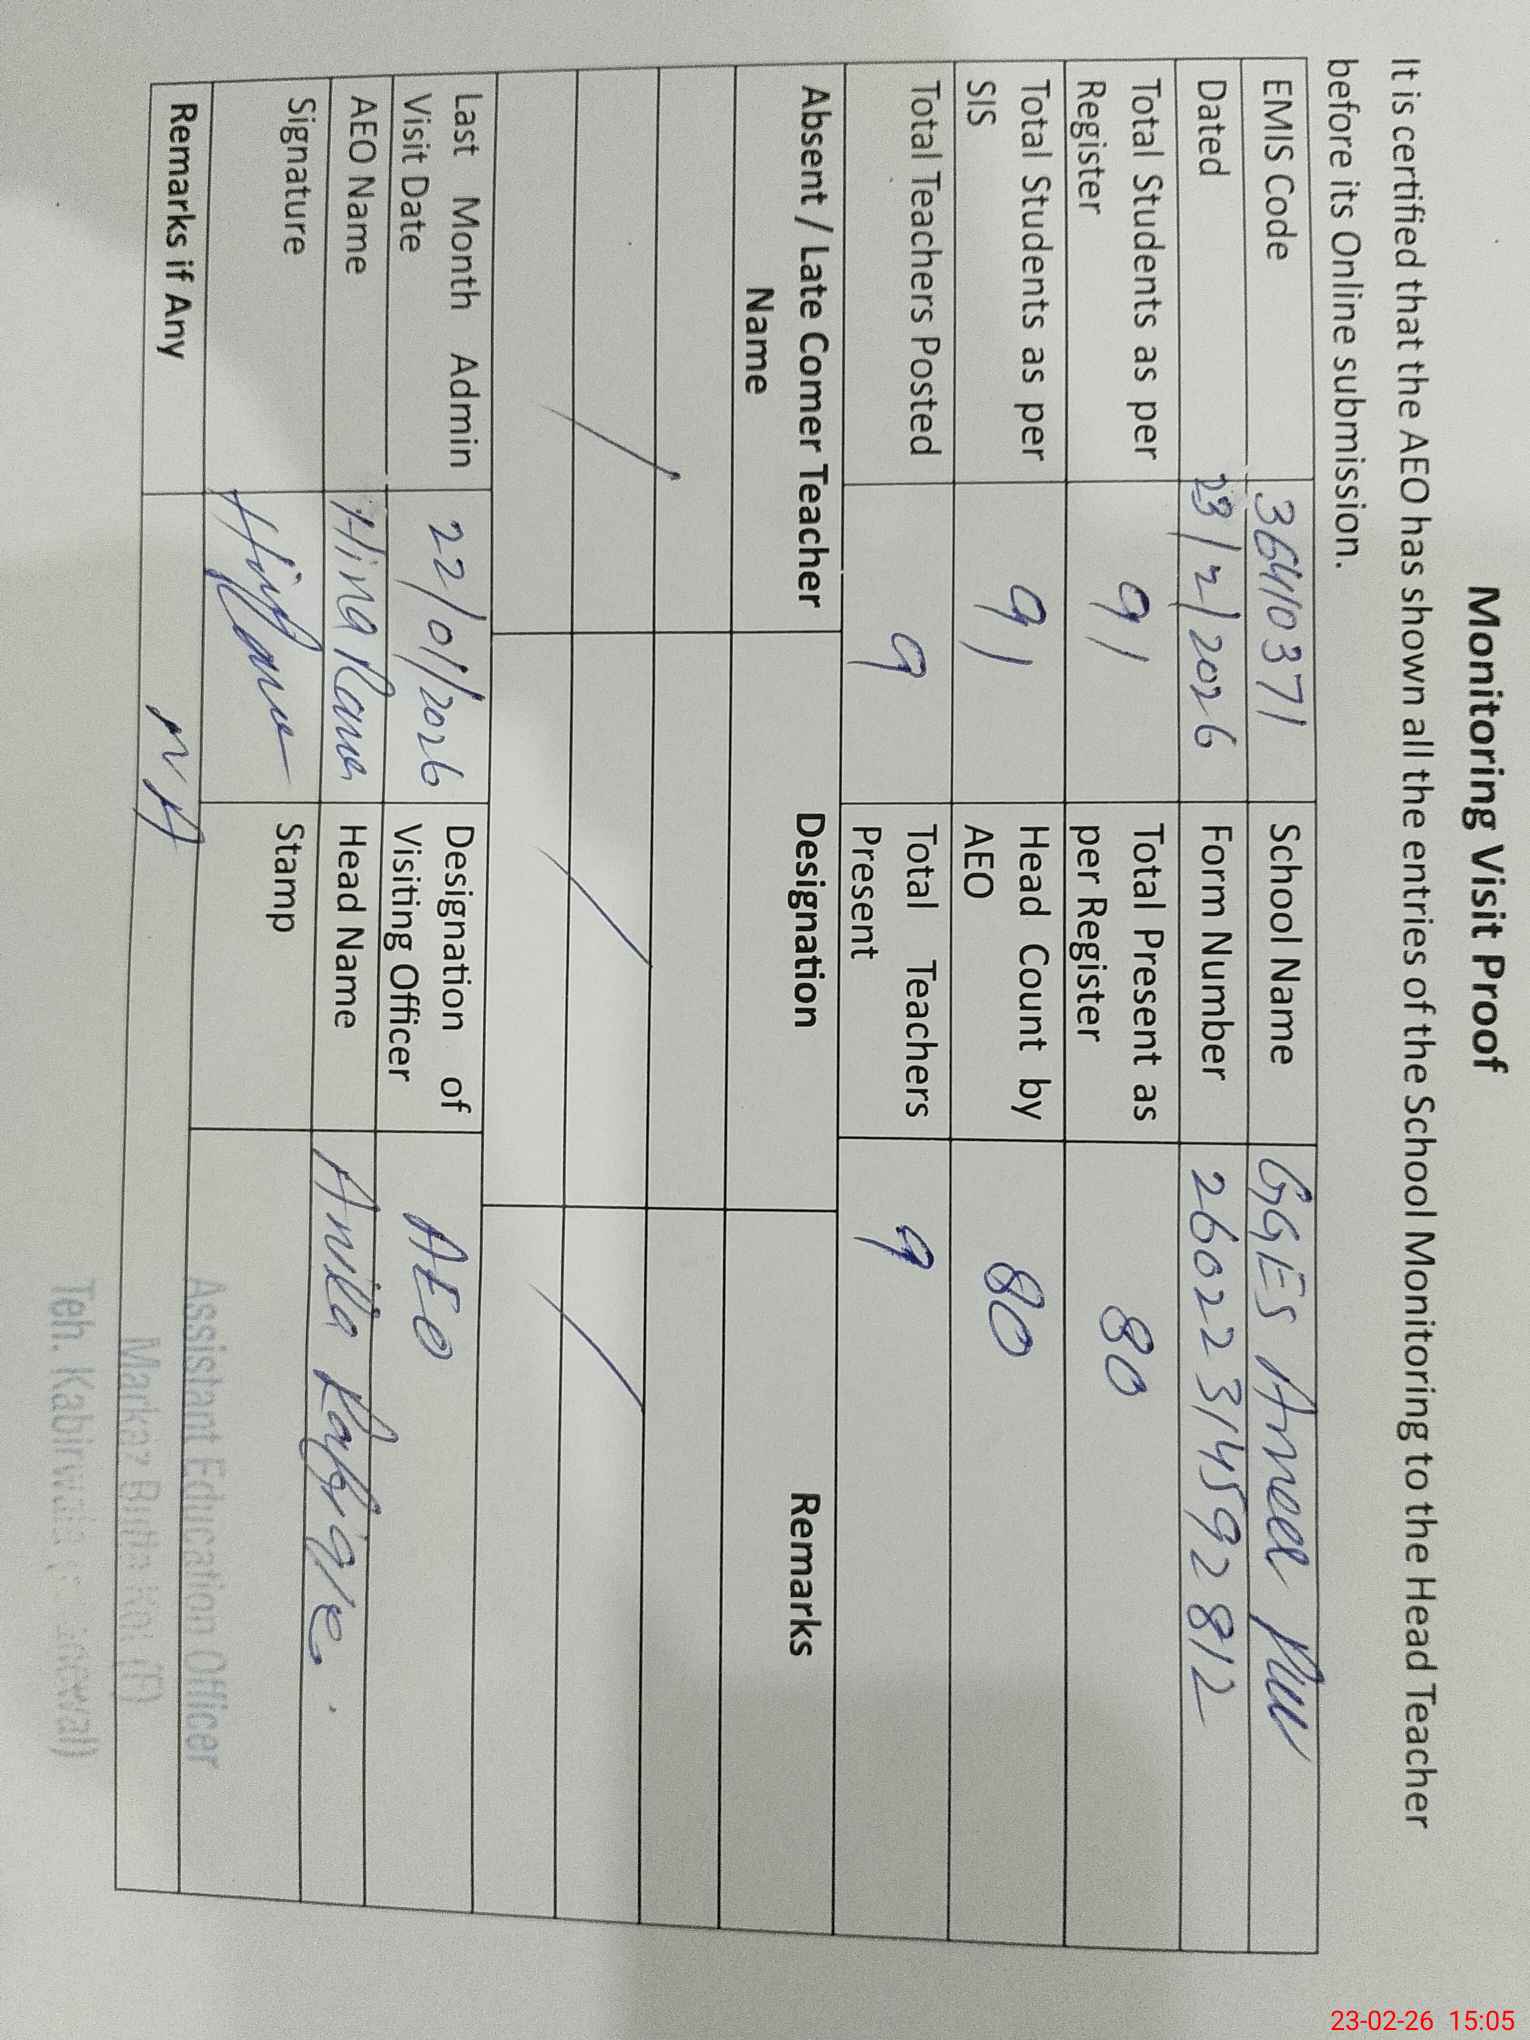 Monitoring Visit Proof
It is certified that the AEO has shown all the entries of the School Monitoring to the Head Teacher
before its Online submission.
EMIS Code 36410371 School Name GGES Ameer Pur
Dated 23/2/2026 Form Number 26022314592812
Total Students as per Register 91 Total Present as per Register 80
Total Students as per SIS 91 Head Count by AEO 80
Total Teachers Posted 9 Total Teachers Present 9
Absent / Late Comer Teacher Name Designation Remarks
Last Month Admin Visit Date 22/01/2026 Designation of Visiting Officer AEO
AEO Name Hina Rana Head Name Anila Rafique.
Signature Stamp
Assistant Education Officer
Remarks if Any NA
Markaz Kot (F)
Teh. Kabirwala
23-02-26 15:05